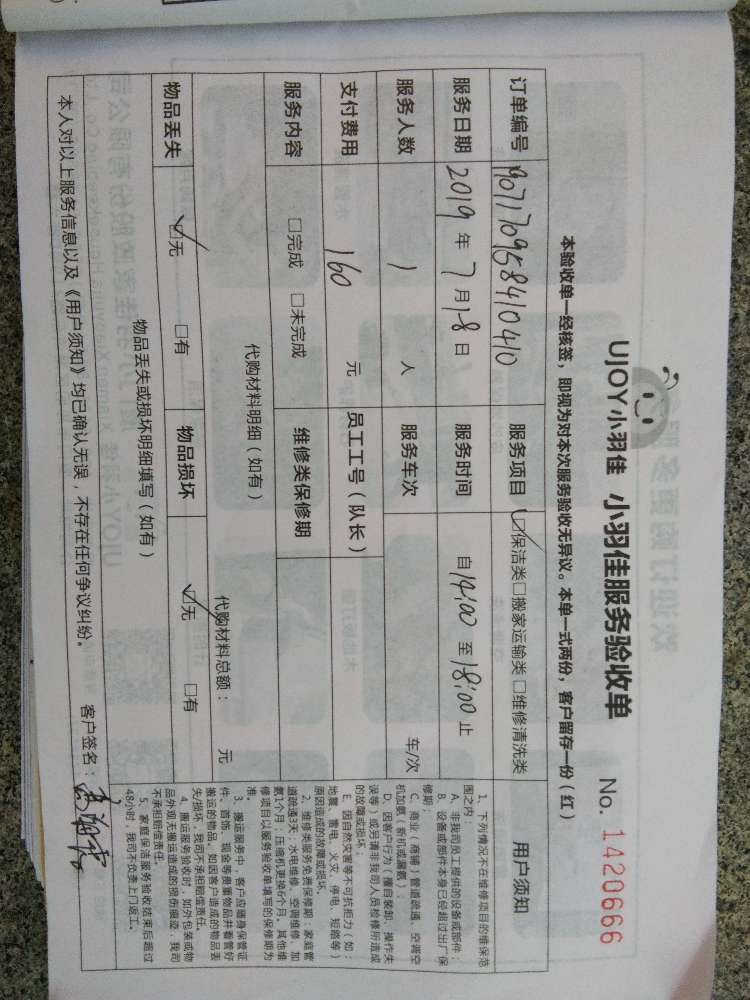 UJOY小羽佳 小羽佳服务验收单 No. 1420666
本验收单一经核签，即视为对本次服务验收无异议。本单一式两份，客户留存一份（红）
订单编号 1907170958410410 服务项目 ☑保洁类□搬家运输类□维修清洗类 用户须知
服务日期 2019 年 7 月 18 日 服务时间 自14:00 至 18:00 止
服务人数 1 人 服务车次 车/次
支付费用 160 元 员工工号（队长）
服务内容 □完成 □未完成 维修类保修期
代购材料明细（如有）
代购材料总额： 元
物品丢失 ☑无 □有 物品损坏 ☑无 □有
物品丢失或损坏明细填写（如有）
1、下列情况不在维修项目的维保范
围之内：
A、非我司员工提供的设备或部件；
B、设备或部件本身已经超过出厂保
修期；
C、商业（商铺）管道疏通、空调空
机加氨（新机或漏氨）；
D、因客户行为（擅自装卸、操作失
误等）或另请非我司人员检修所造成
的故障或损坏；
E、因自然灾害等不可抗拒力（如：
地震、雷电、火灾、停电、短路等）
原因造成的故障或损坏。
2、维修类服务免费保修期：家庭管
道疏通3天，水电维修、空调维修、加
氨1个月；压缩机更换6个月。其他维
修项目以服务验收单填写的保修期为
准。
3、搬运服务中，客户应随身保管证
件、首饰、现金等贵重物品并看管好
搬运的物品，如因客户造成的物品丢
失/损坏，我司不承担赔偿责任。
4、搬运服务验收时，如外包装或物
品外观无搬运造成的损伤痕迹，我司
不承担赔偿责任。
5、家庭保洁服务验收结束后超过
48小时，我司不负责上门返工。
本人对以上服务信息以及《用户须知》均已确认无误，不存在任何争议纠纷。 客户签名：